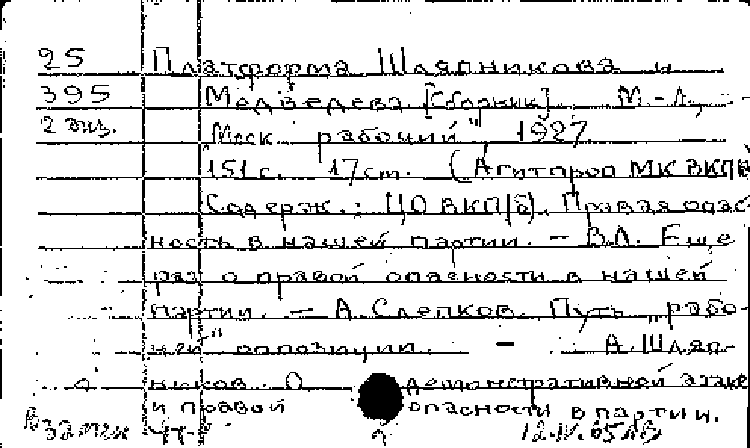 25 Платформа Шляпникова и
395 Медведева. [Сборник]. М.-Л.,
2 экз. "Моск. рабочий", 1927
151 с. 17 см. (Агитпроп МК ВКПб
Содерж.: ЦО ВКП(б). Правая опас-
ность в нашей партии. - В.Л. Еще
раз о правой опасности в нашей
партии. - А. Слепков. Путь "рабо-
чей" оппозиции. - А. Шляп-
ников. О демонстративной атаке
и правой опасности в партии.
Взамен 12.IV.65